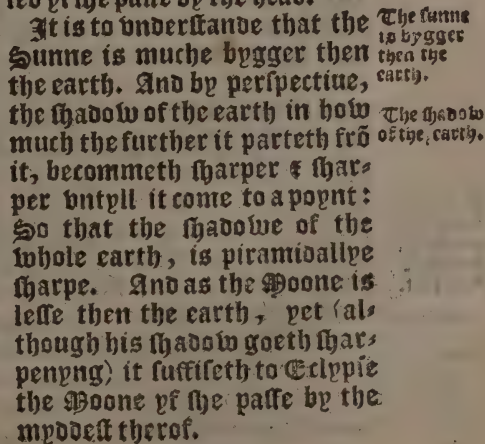 the head.
It is to vnderstande that the
Sunne is muche bygger then
the earth. And by perspectiue,
the shadow of the earth in how
much the further it parteth frõ
it, becommeth sharper & shar⸗
per vntyll it come to a poynt:
So that the shadowe of the
whole earth, is piramidallye
sharpe. And as the Moone is
lesse then the earth, yet (al⸗
though his shadow goeth shar⸗
penyng) it suffiseth to Eclypse
the Moone yf she passe by the
myddest therof.
The sunne
is bygger
then the
earth.
The shadow
of the, earth.